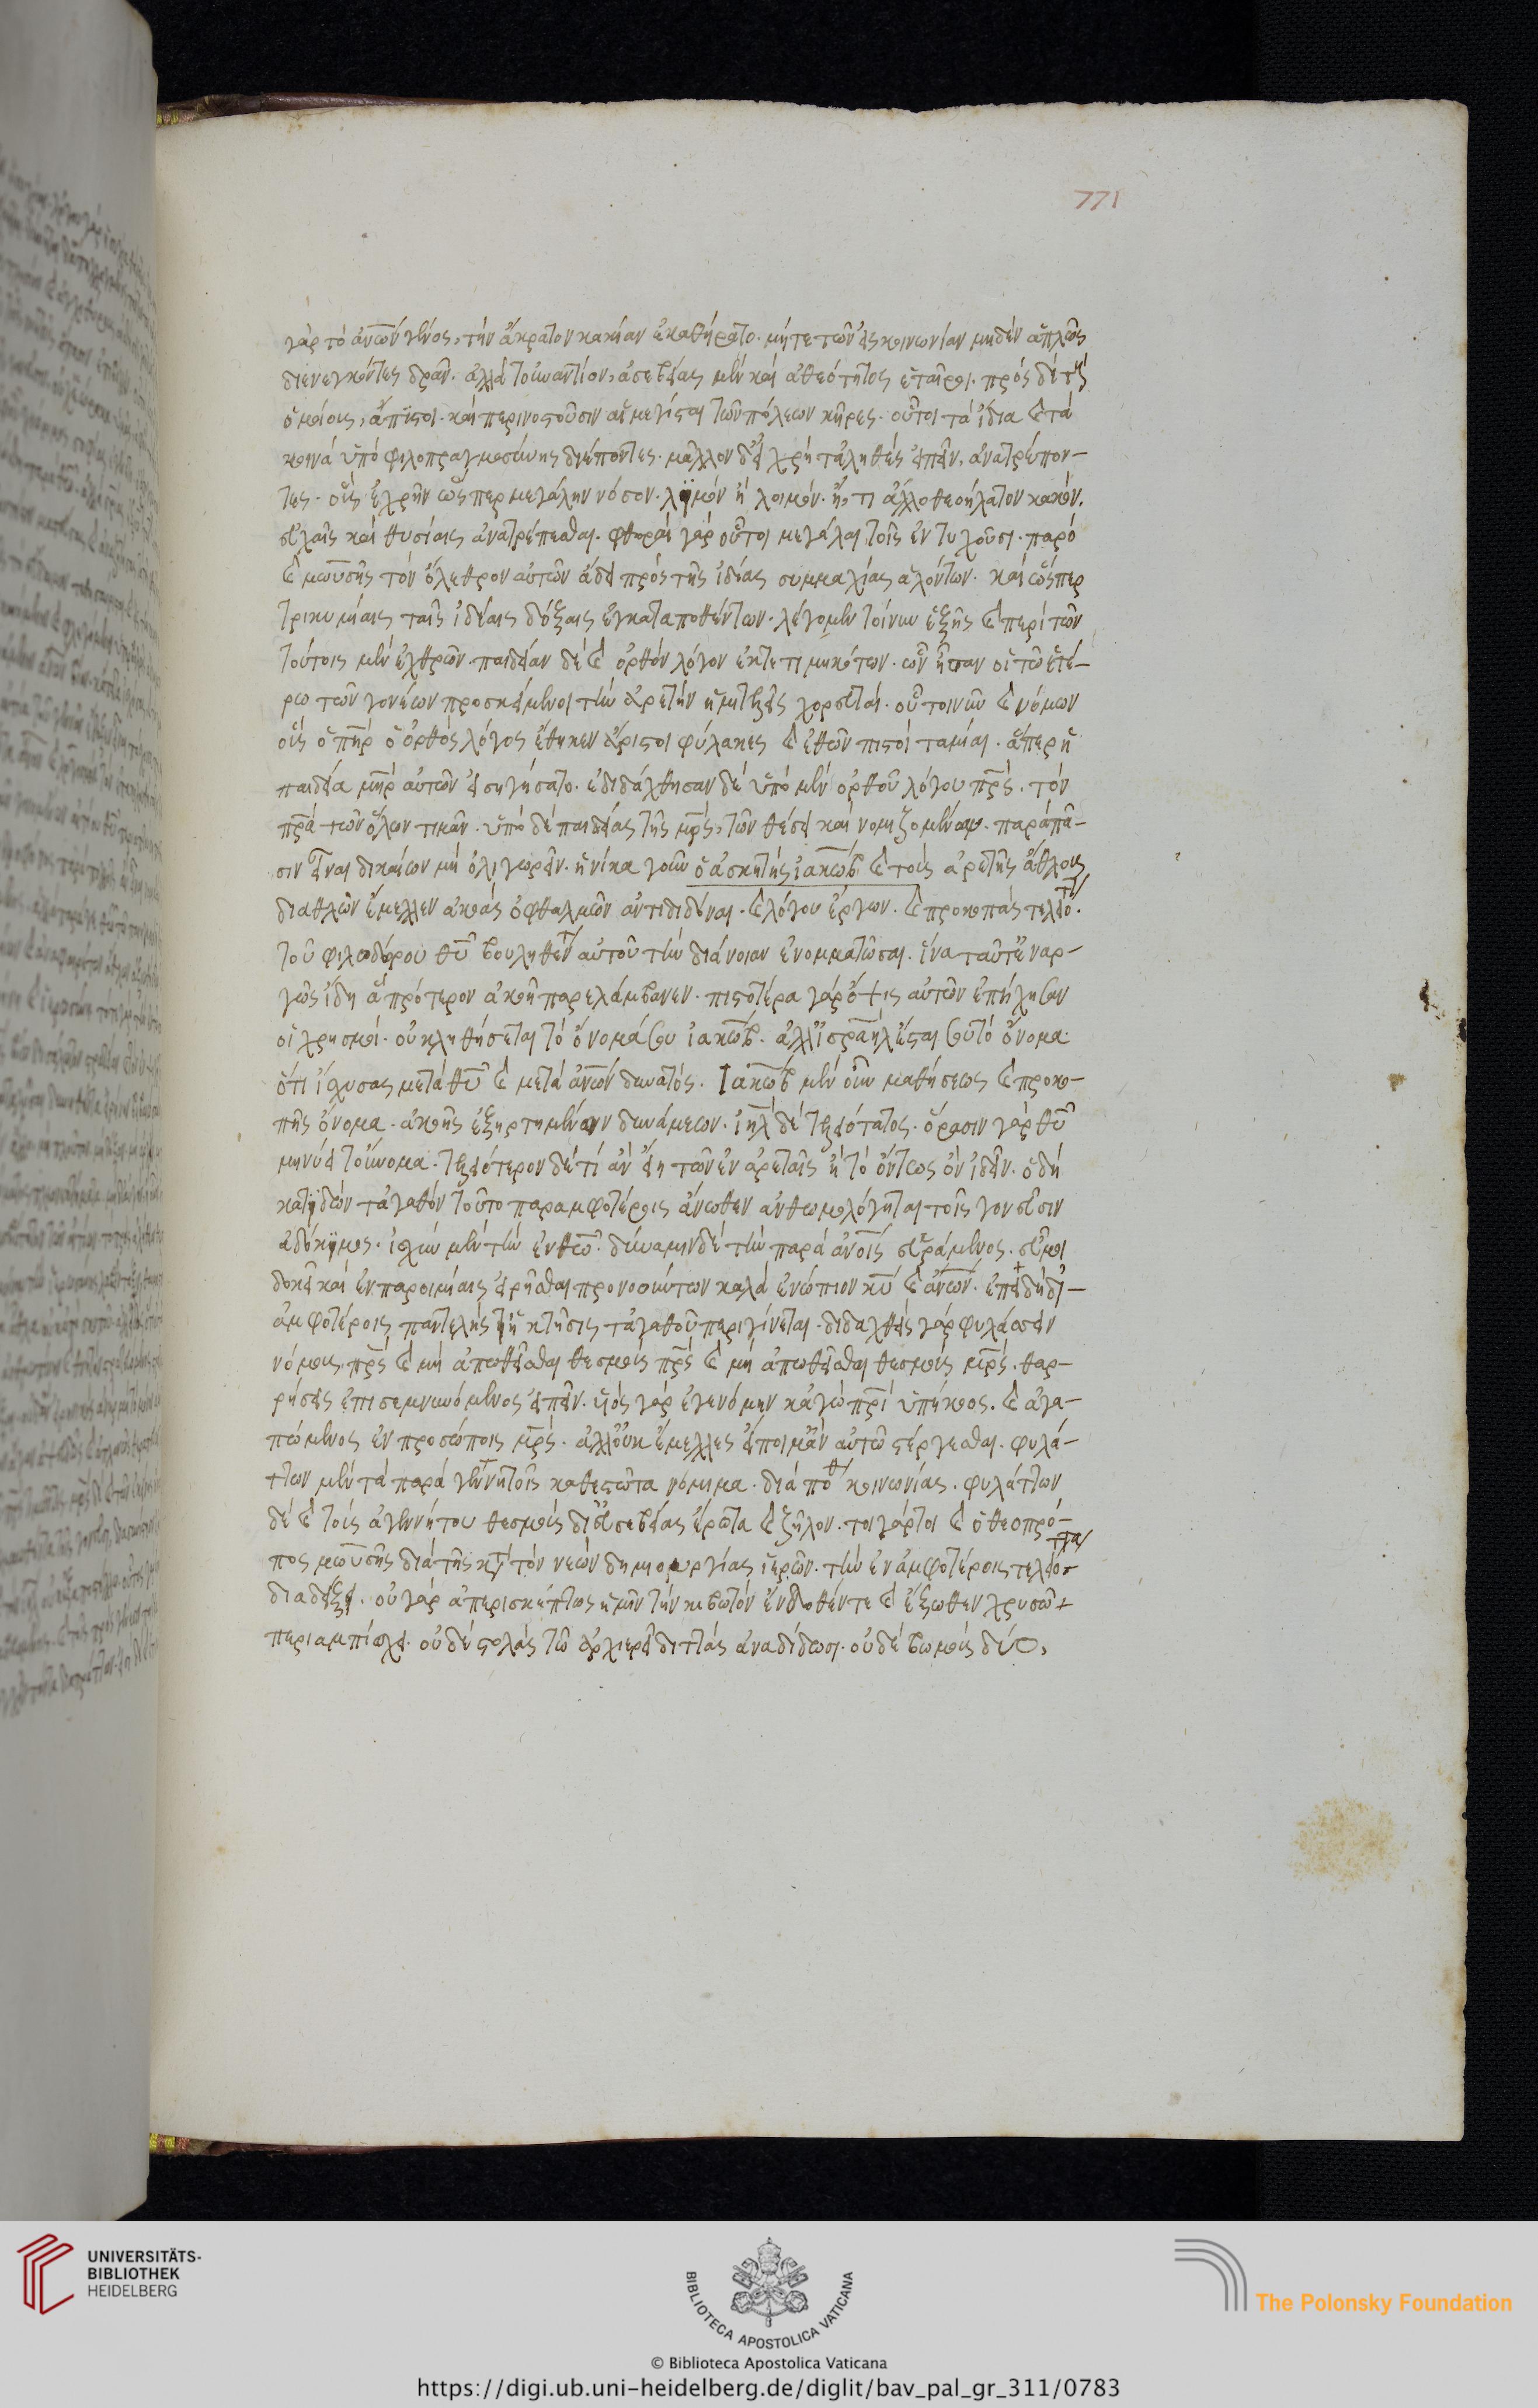 771
γὰρ τὸ ἀν̅ω̅ν γένος, τὴν ἄκρατον κακίαν ἐκαθήρατο. μήτε τῶν εἰς κοινωνίαν μηδὲν ἁπλῶς
διενεγκόντες δρᾶν. ἀλλὰ τοὐναντίον, ἀσεβείας μὲν καὶ ἀθεότητος ἑταῖροι. πρὸς δὲ τοὺς
ὁμοίους, ἄπιστοι. καὶ περινοστοῦσιν αἱ μέγισται τῶν πόλεων κῆρες. οὗτοι τὰ ἴδια καὶ τὰ
κοινὰ ὑπὸ φιλοπραγμοσύνης διέποντες. μᾶλλον δ' εἰ χρὴ τἀληθὲς εἰπεῖν, ἀνατρέπον-
τες. οὓς ἐχρῆν ὥσπερ μεγάλην νόσον. λιμὸν ἢ λοιμὸν. ἤ, τι ἄλλο θεοήλατον κακόν.
εὐχαῖς καὶ θυσίαις ἀνατρέπεσθαι. φθοραὶ γὰρ οὗτοι μεγάλαι τοῖς ἐντυχοῦσι. παρὸ
καὶ μωυσῆς τὸν ὄλεθρον αὐτῶν ᾄδει πρὸς τῆς ἰδίας συμμαχίας ἁλόντων. καὶ ὥσπερ
τρικυμίαις ταῖς ἰδίαις δόξαις ἐγκαταποθέντων. λέγομεν τοίνυν ἑξῆς καὶ περὶ τῶν
τούτοις μὲν ἐχθρῶν. παιδείαν δὲ καὶ ὀρθὸν λόγον ἐκτετιμηκότων. ὧν ἦσαν οἱ τῷ ἑτέ-
ρω τῶν γονέων προσκείμενοι τὴν ἀρετὴν ἡμιτελεῖς χορευταί. οὗτοι νῦν καὶ νόμων
οὓς ὁ π̅η̅ρ ὁ ὀρθὸς λόγος ἔθηκεν ἄριστοι φύλακες καὶ ἐθῶν πιστοὶ ταμίαι. ἅπερ ἡ
παιδεία μ̅η̅ρ αὐτῶν εἰσηγήσατο. ἐδιδάχθησαν δὲ ὑπὸ μὲν ὀρθοῦ λόγου π̅ρ̅ς. τὸν
π̅ρ̅α τῶν ὅλων τιμᾶν. ὑπὸ δὲ παιδείας τῆς μ̅ρ̅ς, τῶν θέσει καὶ νομιζομένων. παρὰ πᾶ-
σιν εἶναι δικαίων μὴ ὀλιγωρεῖν. ἡνίκα γοῦν ὁ ἀσκητὴς ἰακὼβ καὶ τοὺς ἀρετῆς ἄθλους
διαθλῶν ἔμελλεν ἀκοὰς ὀφθαλμῶν ἀντιδιδόναι. καὶ λόγου ἔργων. καὶ προκοπὰς τελειότη.
τοῦ φιλοδώρου θ̅υ βουληθέντ αὐτοῦ τὴν διάνοιαν ἐνομματῶσαι. ἵνα ταῦτ' ἐναρ-
γῶς ἴδη ἃ πρότερον ἀκοῇ παρελάμβανεν. πιστοτέρα γὰρ ὄψις ὤτων ἐπήχησαν
οἱ χρησμοὶ. οὐ κληθήσεται τὸ ὄνομά σου ἰακὼβ. ἀλλ' ἰσραὴλ ἔσται σου τὸ ὄνομα.
ὅτι ἴσχυσας μετὰ θ̅υ καὶ μετὰ ἀν̅ω̅ν δυνατός. Ἰακὼβ μὲν οὖν μαθήσεως καὶ προκο-
πῆς ὄνομα. ἀκοῆς ἐξηρτημένων δυνάμεων. ι̅η̅λ δὲ τελειότατος. ὅρασιν γὰρ θ̅υ
μηνύει τοὔνομα. τελειότερον δὲ τί ἂν εἴη τῶν ἐν ἀρεταῖς ἢ τὸ ὄντως ὂν ἰδεῖν. ὁ δὴ
κατιδὼν τἀγαθὸν τοῦτο παρ' ἀμφοτέροις ἄνωθεν ἀνθωμολόγηται τοῖς γονεῦσιν
εὐδόκιμος. ἰσχὺν μὲν τὴν ἐν θ̅ω. δύναμιν δὲ τὴν παρὰ ἀν̅ο̅ις εὑράμενος. εὖ μοι
δοκεῖ καὶ ἐν παροιμίαις εἰρῆσθαι προνοούντων καλὰ ἐνώπιον κ̅υ καὶ ἀν̅ω̅ν. ἐπειδὴ δι'-
ἀμφοτέροις παντελὴς ἡ κτῆσις τἀγαθοῦ περιγίνεται. διδαχθεὶς γὰρ φυλάσσειν
νόμους π̅ρ̅ς καὶ μὴ ἀπωθεῖσθαι θεσμοὺς π̅ρ̅ς καὶ μὴ ἀπωθεῖσθαι θεσμοὺς μ̅ρ̅ς. θαρ-
ρήσεις ἐπισεμνυνόμενος εἰπεῖν. υἱὸς γὰρ ἐγενόμην κἀγὼ π̅ρ̅ι ὑπήκοος. καὶ ἀγα-
πώμενος ἐν προσώποις μ̅ρ̅ς. ἀλλ' οὐκ ἔμελλες εἴποιμ' ἂν αὐτῷ στέργεσθαι. φυλά-
ττων μὲν τὰ παρὰ γεννητοῖς καθεστῶτα νόμιμα. διὰ πόθ κοινωνίας. φυλάττων
δὲ καὶ τοὺς ἀγεννήτου θεσμοὺς δι' εὐσεβείας ἔρωτα καὶ ζῆλον. τοιγάρτοι καὶ ὁ θεοπρό-
πος μωυσῆς διὰ τῆς κτ τὸν νεὼν δημιουργίας ἱερῶν. τὴν ἐν ἀμφοτέροις τελειότητα
διαδείξει. οὐ γὰρ ἀπερισκέπτως ἡμῖν τὴν κιβωτὸν ἔνδοθέν τε καὶ ἔξωθεν χρυσῷ
περιαμπίσχει. οὐδὲ στολὰς τῷ ἀρχιερεῖ διττὰς ἀναδίδωσι. οὐδὲ βωμοὺς δύο,
UNIVERSITÄTS-
BIBLIOTHEK
HEIDELBERG
BIBLIOTECA APOSTOLICA VATICANA
The Polonsky Foundation
© Biblioteca Apostolica Vaticana
https://digi.ub.uni-heidelberg.de/diglit/bav_pal_gr_311/0783